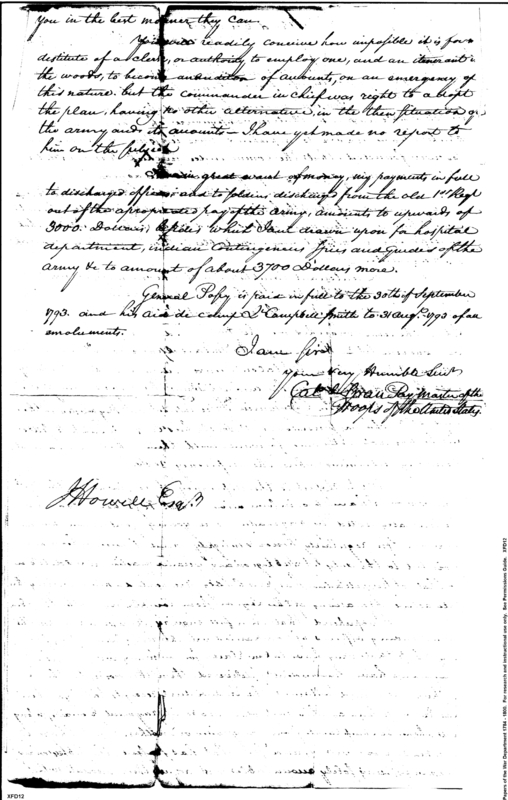 you in the best manner they can.
You will readily conceive how impossible it is for a
destitute of a clerk, or authority to employ one, and an itinerant in
the woods, to become an auditor of accounts, on an emergency of
this nature. but the commander in chief was right to adopt
the plan, having no other alternative, in the then situation of
the army and its accounts — I have yet made no report to
him on the subject
in great want of money, my payments in full
to discharged officers and to soldiers discharged from the old 1st Regt
out of the appropriated pay of the army, amounts to upwards of
3000. Dollars, besides which I am drawn upon for hospital
department, indian Contingencies Spies and guides of the
army &c to amount of about 3700 Dollars more.
General Posey is paid in full to the 30th of September
1793. and his aid de camp Lt Campbell Smith to 31 Augt. 1793 of all
emoluments.
I am Sir
your very Humble Servt
Caleb Swan Pay Master of the
Troops of the United States.
J Howell Esqr
Papers of the War Department 1784 - 1800. For research and instructional use only. See Permissions Guide. XFD12
XFD12